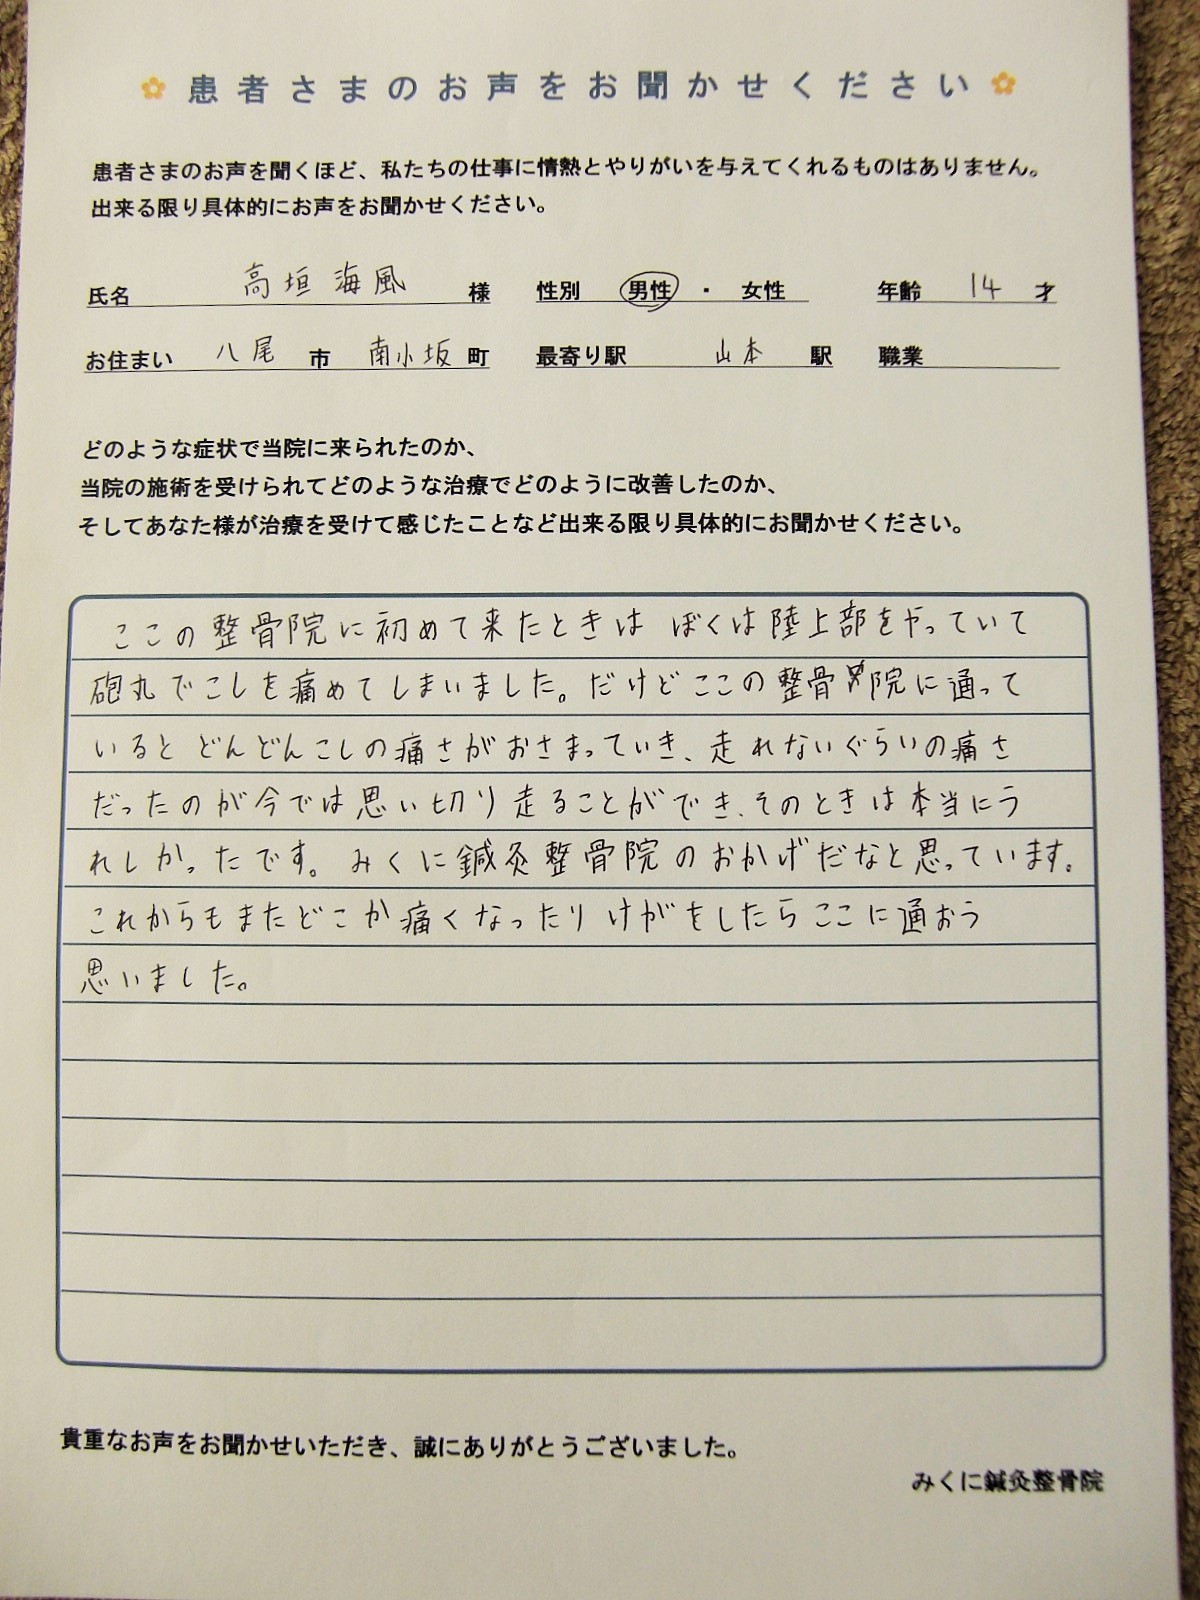 患者さまのお声をお聞かせください
患者さまのお声を聞くほど、私たちの仕事に情熱とやりがいを与えてくれるものはありません。
出来る限り具体的にお声をお聞かせください。
氏名 高垣 海風 様 性別 男性 ・ 女性 年齢 14 才
お住まい 八尾 市 南小坂 町 最寄り駅 山本 駅 職業
どのような症状で当院に来られたのか、
当院の施術を受けられてどのような治療でどのように改善したのか、
そしてあなた様が治療を受けて感じたことなど出来る限り具体的にお聞かせください。
ここの整骨院に初めて来たときは ぼくは陸上部をやっていて
砲丸でこしを痛めてしまいました。だけどここの整骨院に通って
いると どんどんこしの痛さがおさまっていき、走れないぐらいの痛さ
だったのが今では思い切り走ることができ、そのときは本当にう
れしかったです。みくに鍼灸整骨院のおかげだなと思っています。
これからもまたどこか痛くなったりけがをしたらここに通おう
思いました。
貴重なお声をお聞かせいただき、誠にありがとうございました。
みくに鍼灸整骨院